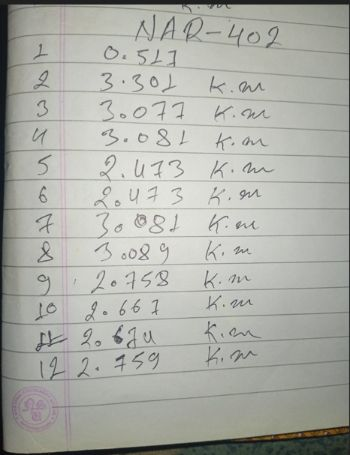 K.m
NAR-402
1 0.517
2 3.301 K.m
3 3.077 K.m
4 3.081 K.m
5 2.473 K.m
6 2.473 K.m
7 3.081 K.m
8 3.089 K.m
9 2.758 K.m
10 2.667 K.m
11 2.674 K.m
12 2.759 K.m